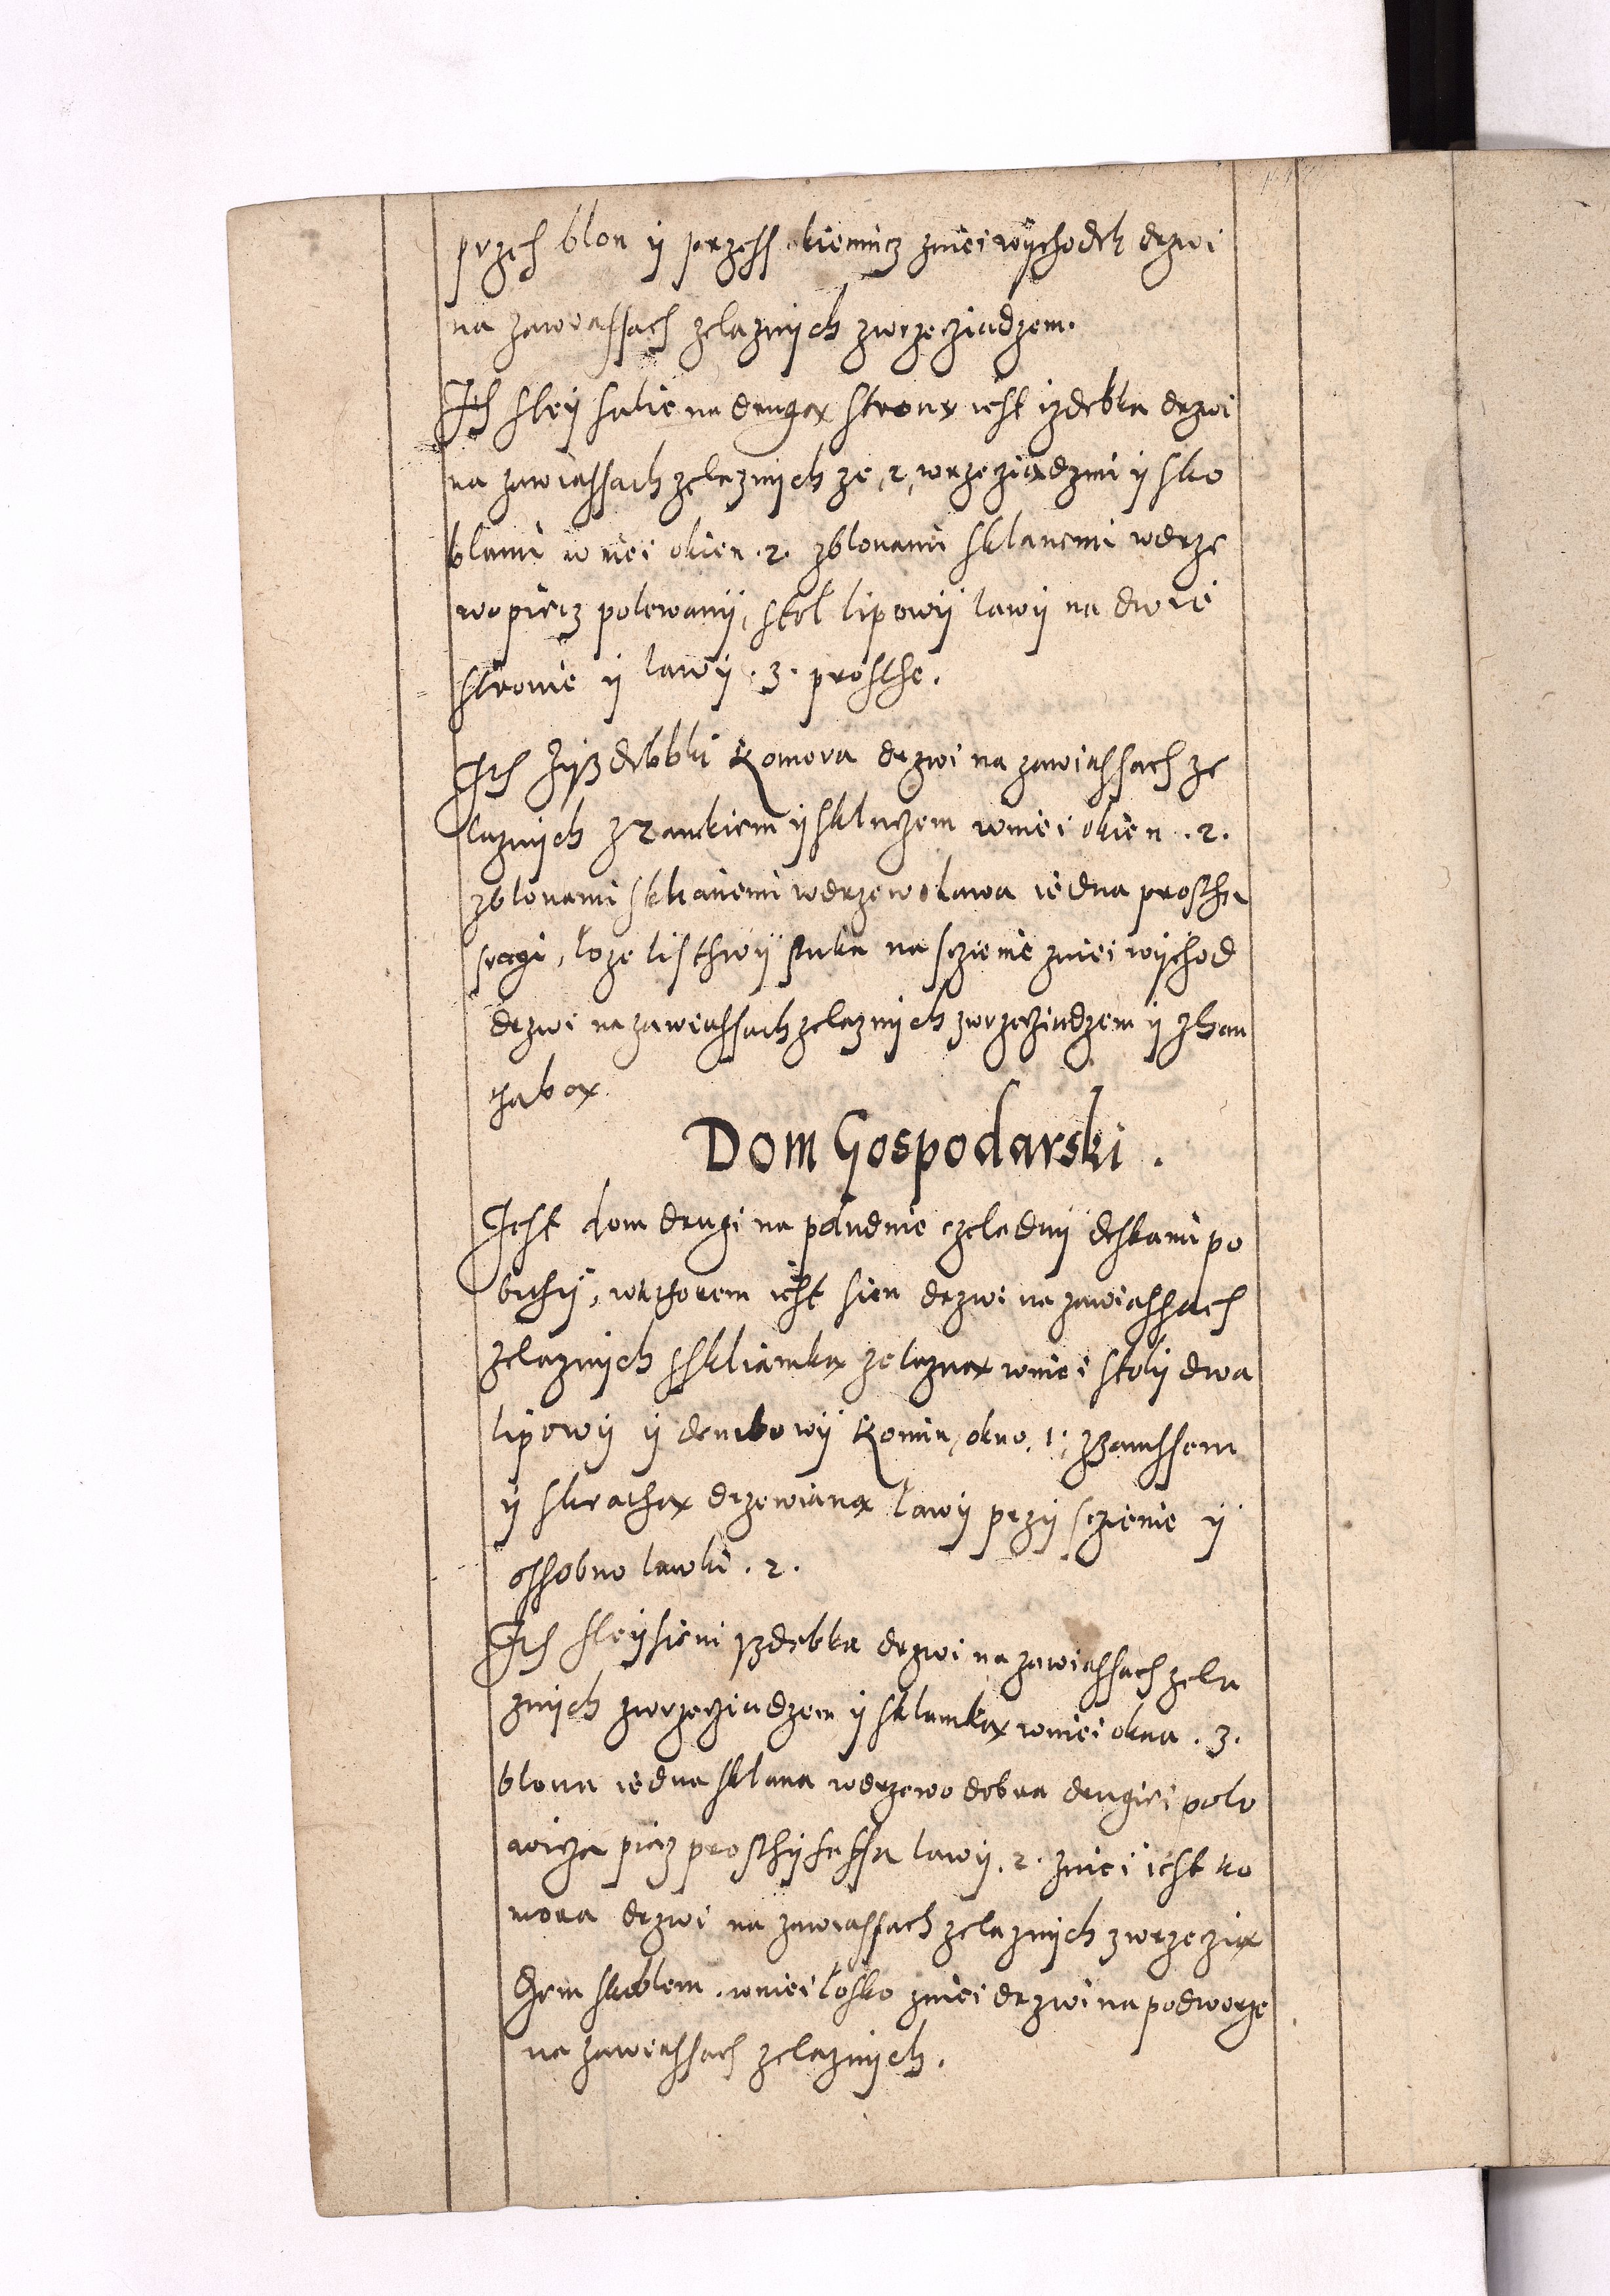 przes blon ÿ przess okiennicz zniei wÿchodek drzwi
na zawiassach zelaznÿch zwrzecziadzem.
Jth steÿ salie na drugax stronx iest izdebka drzwi
na zawiassach zelaznÿch ze 2, wrzecziadzmi ÿ sko
blami w niei okien .2. zblonami sklanemi wdrze
wo piecz polewanÿ, stol lipowÿ lawÿ na dwie
stronie ÿ lawÿ .3. prosthe.
Jth Zÿzdebbki Komora drzwi na zawiassach ze
laznÿch z zamkiem ÿ skluczem wniei okien .2.
zblonami sklianemi wdrzewo lawa iedna prostha
sragi, loze listhwÿ stuka na sczienie zniei wÿchod
drzwi na zawiassach zelaznÿch zwrzecziadzem ÿ zhan
thabax
Dom Gospodarski .
Jest dom drugi na poludnie czeladnÿ deskami po
bithÿ, wkthorem iest sien drzwi na zawiassach
zelaznÿch sskliamkax zelaznax wniei stolÿ dwa
lipowÿ ÿ dembowÿ Komin, okno .1. zzamssem
ÿ skrathax drzewianax lawÿ przÿ sczienie ÿ
ossobno lawki .2.
Jth steÿ sieni izdebka drzwi na zawiassach zela
znÿch zwrzecziadzem ÿ sklamkax wniei okna .3.
blona iedna sklana wdrzewo dobra drugiei polo
wicza piecz prosthÿ fassa lawÿ .2. zniei iest ko
mora drzwi na zawiassach zelaznÿch zwrzecziax
dzem skoblem. wniei losko zniei drzwi na podworze
na zawiassach zelaznÿch.